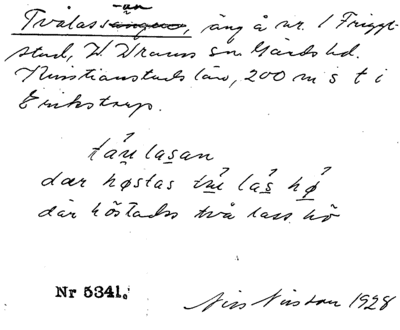 -an
Tvålass~~ängen~~, äng å nr. 1 Friggt-
stad, V Vram sn Gärds hd.
Kristianstads län, 200 m s t i
Erikstorp.
tåu lasan
dær høstas tu las hø
där höstades två lass hö
Nr 5341.
1928